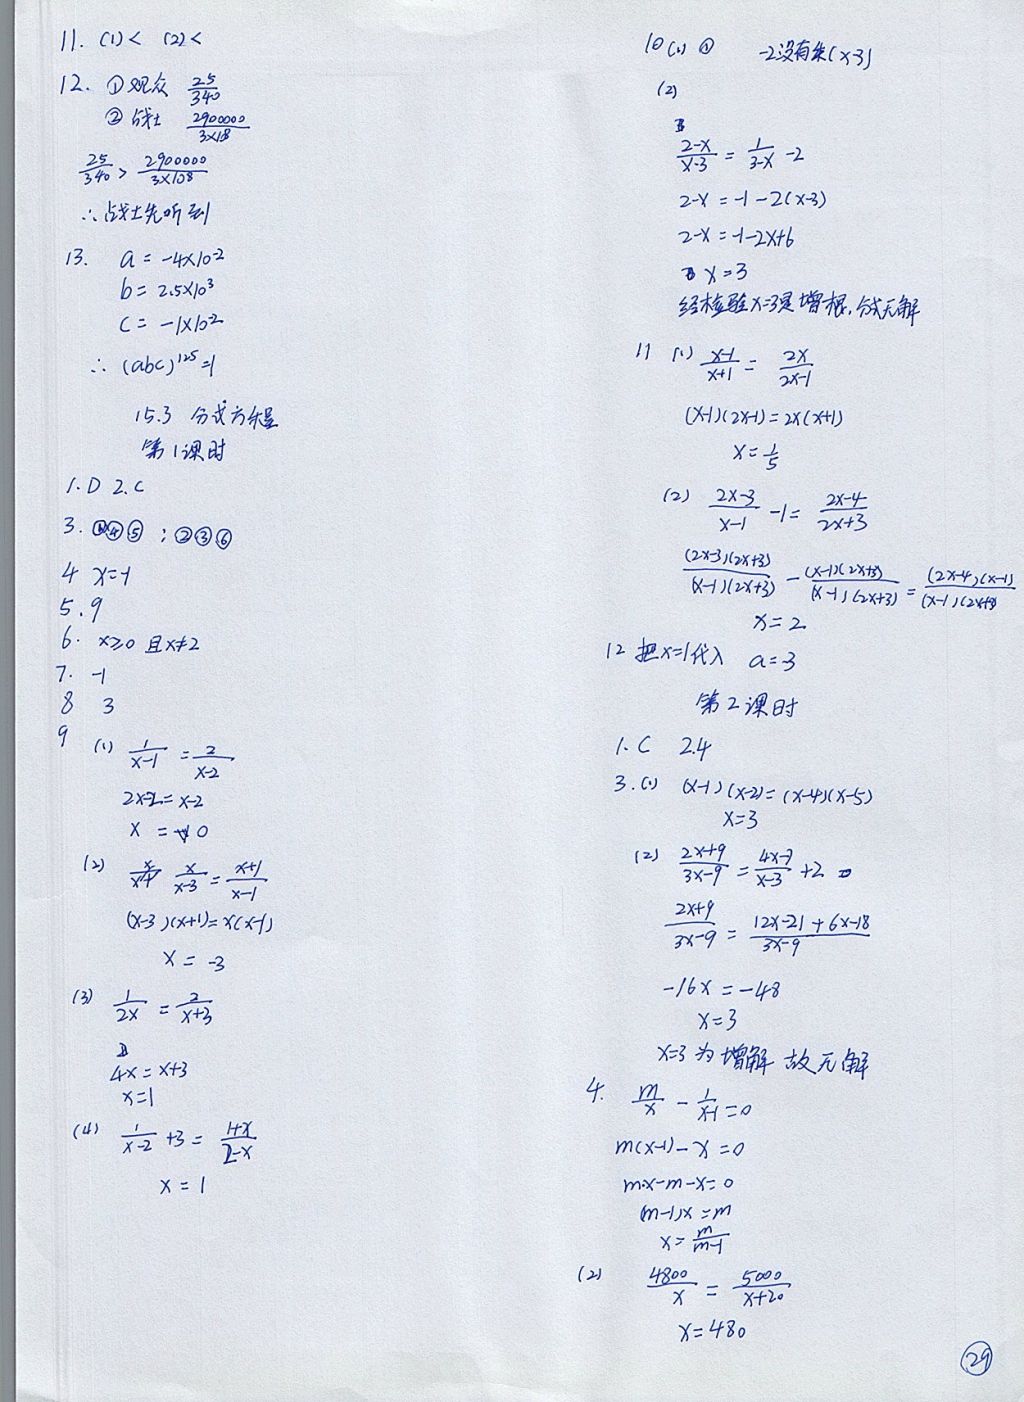 11. (1)< (2)<
12. ①观众 25/340
②战士 2900000/3×10⁸
25/340 > 2900000/3×10⁸
∴战士先听到
13. a = -4×10⁻²
b = 2.5×10³
c = -1×10⁻²
∴ (abc)¹²⁵=1
15.3 分式方程
第1课时
1.D 2.C
3. ①④⑤ ; ②③⑥
4 x=-1
5. 9
6. x≥0 且x≠2
7. -1
8 3
9 (1) 1/(x-1) = 2/(x-2)
2x-2=x-2
x = 0
(2) x/(x-3) = (x+1)/(x-1)
(x-3)(x+1)=x(x-1)
x = -3
(3) 1/2x = 2/(x+3)
4x=x+3
x=1
(4) 1/(x-2) +3 = (1+x)/(2-x)
x = 1
10 (1) ① -2没有乘(x-3)
(2)
(2-x)/(x-3) = 1/(3-x) -2
2-x = -1-2(x-3)
2-x = -1-2x+6
x=3
经检验x=3是增根,分式无解
11 (1) (x-1)/(x+1) = 2x/(2x-1)
(x-1)(2x-1)=2x(x+1)
x=1/5
(2) (2x-3)/(x-1) -1= (2x-4)/(2x+3)
(2x-3)(2x+3)/(x-1)(2x+3) - (x-1)(2x+3)/(x-1)(2x+3) = (2x-4)(x-1)/(x-1)(2x+3)
x=2
12 把x=1代入 a=-3
第2课时
1. C 2.4
3. (1) (x-1)(x-2)=(x-4)(x-5)
x=3
(2) (2x+9)/(3x-9) = (4x-7)/(x-3) +2
(2x+9)/(3x-9) = (12x-21+6x-18)/(3x-9)
-16x = -48
x=3
x=3为增解 故无解
4. m/x - 1/(x-1) =0
m(x-1)-x=0
mx-m-x=0
(m-1)x=m
x=m/(m-1)
(2) 4800/x = 5000/(x+20)
x=480
29